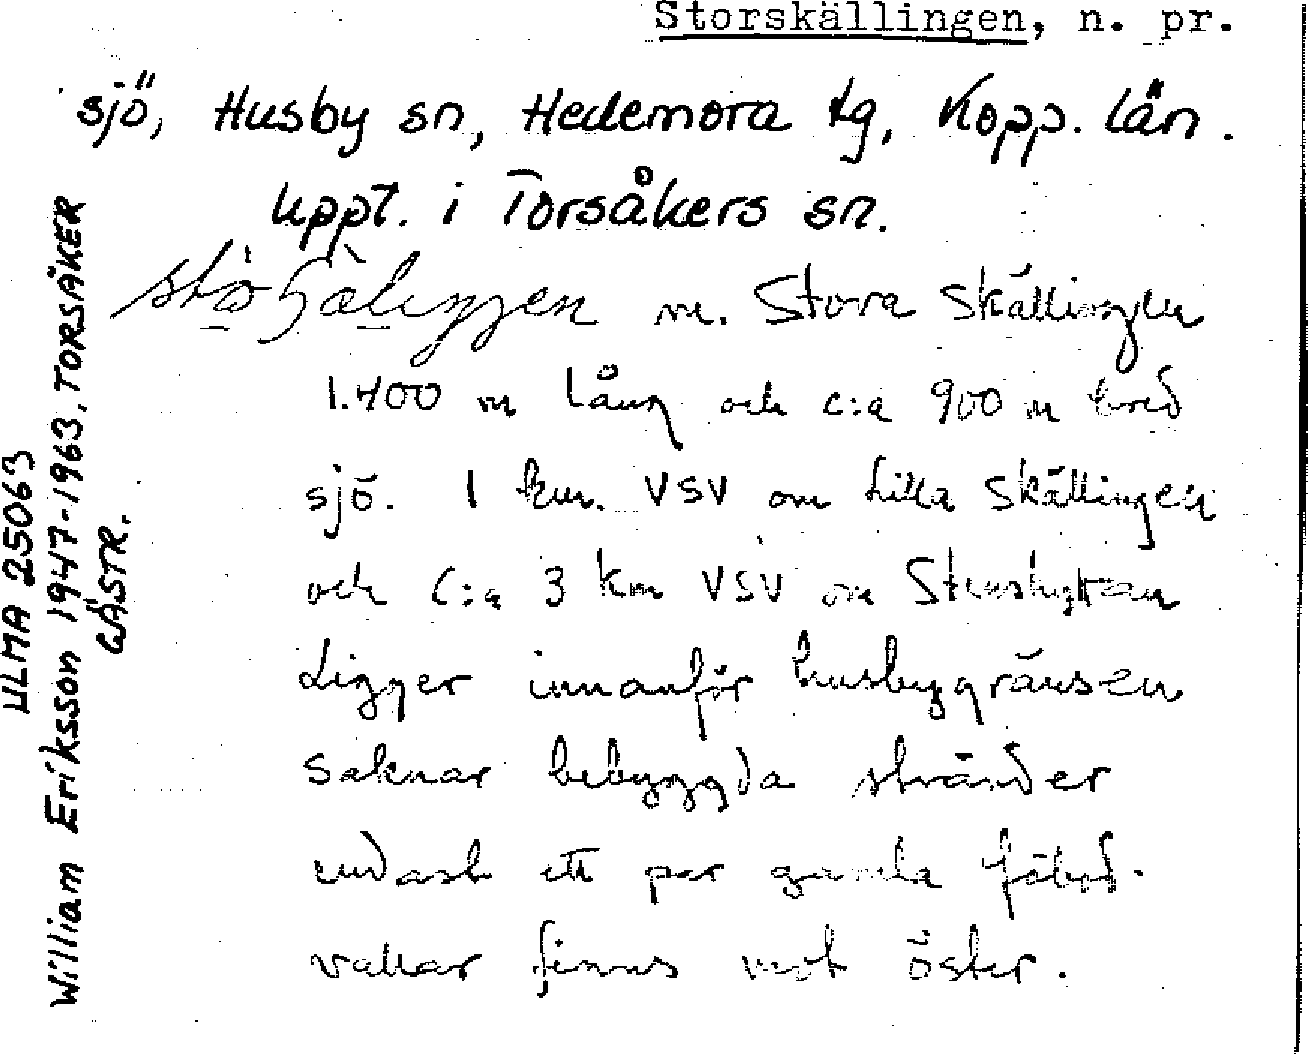 Storskällingen, n. pr.
sjö, Husby sn, Hedemora tg, Kopp. län.
uppt. i Torsåkers sn.
m. Stora Skällingen
1.400 m lång och c:a 900 m bred
sjö. 1 km. VSV om Lilla Skällingen
och c:a 3 km VSV om Stenshyttan
Ligger innanför husbygränsen
saknar bebyggda stränder
endast ett par gamla fäbod-
vallar finns mot öster.
ULMA 25063
William Eriksson 1947-1963. TORSÅKER
GÄSTR.